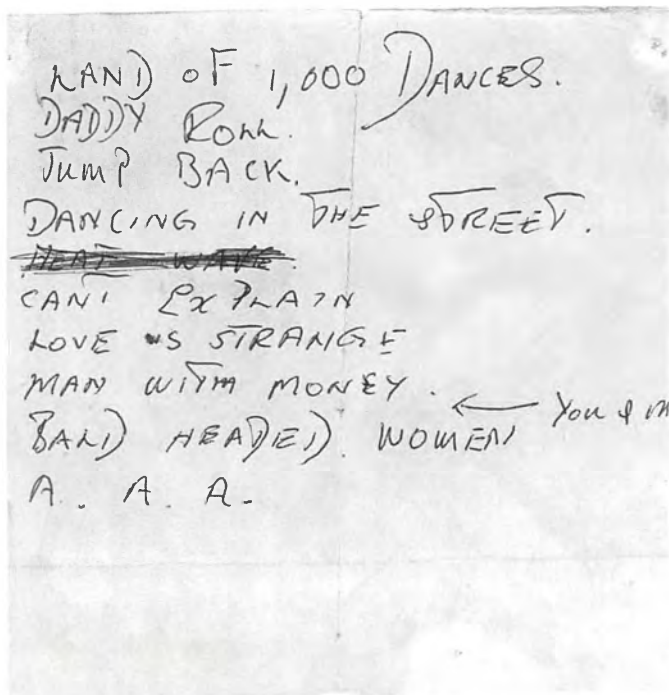 LAND OF 1,000 DANCES.
DADDY ROLL.
JUMP BACK.
DANCING IN THE STREET.
HEAT WAVE.
CANT EXPLAIN
LOVE IS STRANGE
MAN WITH MONEY.
← You & M
BALD HEADED. WOMEN
A. A. A.